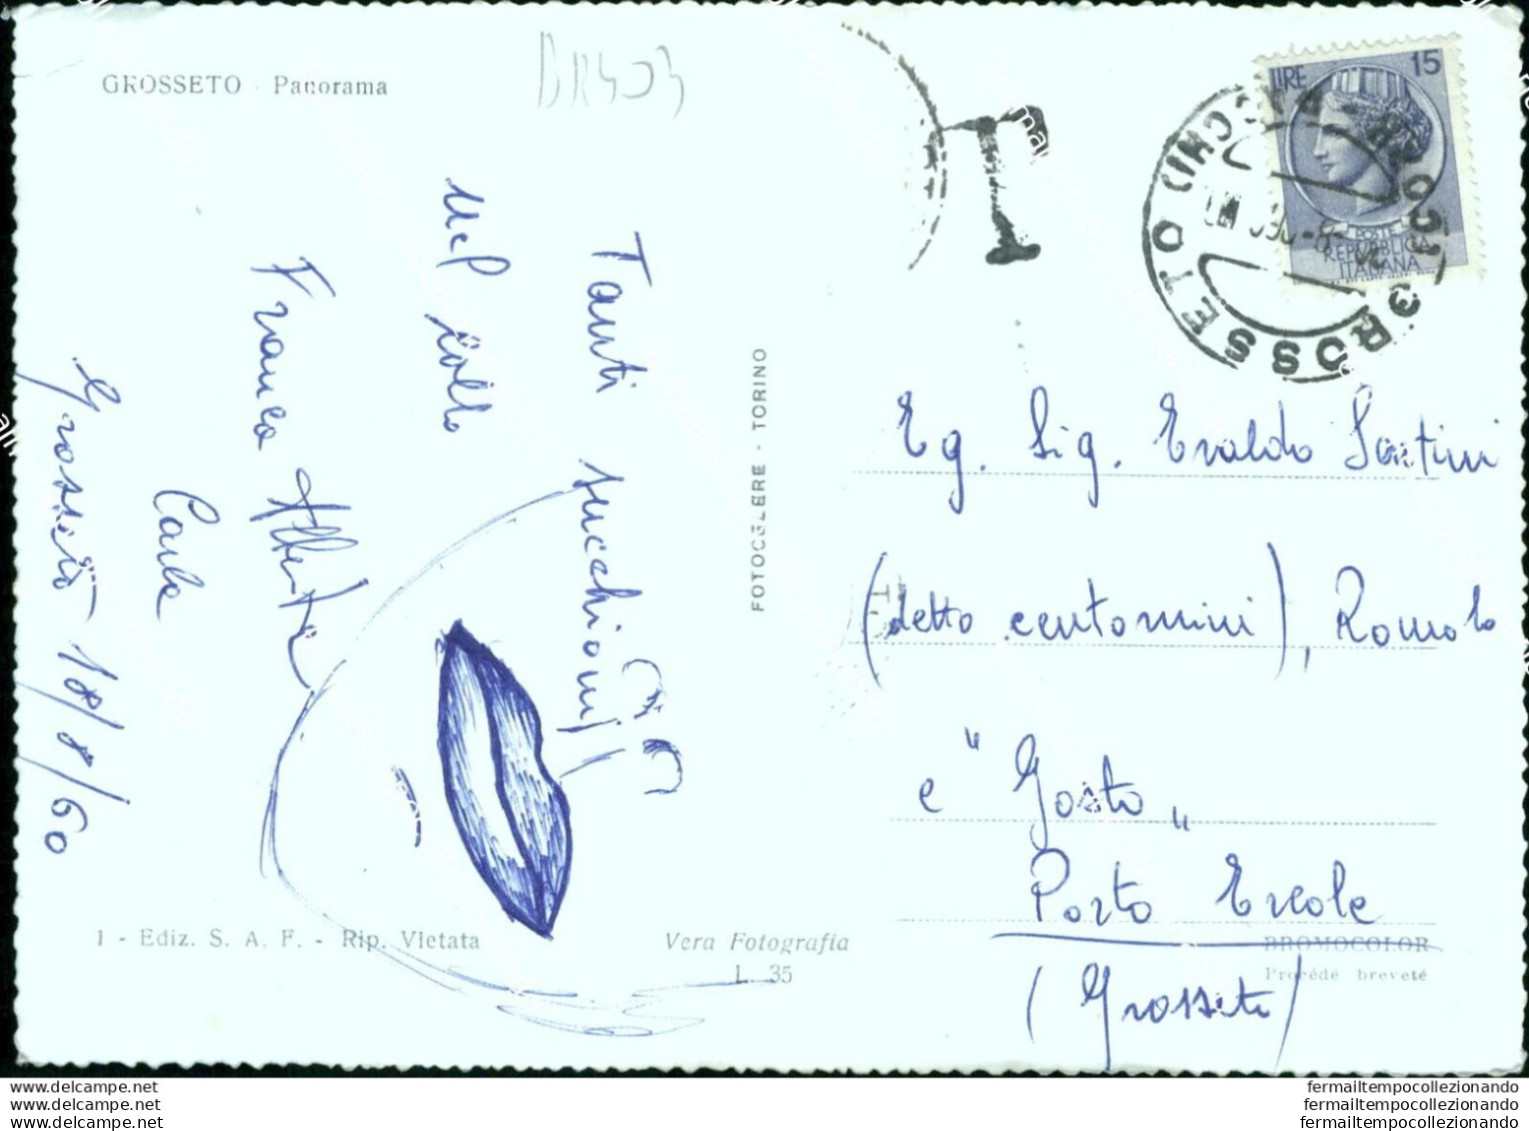 GROSSETO - Panorama
BR403
Tanti succhioni
nel collo
Franco Alberto
Carla
Grosseto 18/8/60
FOTOCELERE - TORINO
T
LIRE 15
POSTE
REPUBBLICA
ITALIANA
GROSSETO
Eg. Sig. Evaldo Santini
(detto centomini), Romolo
e "Gosto„
Porto Ercole
(Grosseto)
1 - Ediz. S. A. F. - Rip. Vietata
Vera Fotografia
L. 35
BROMOCOLOR
Procédé breveté
www.delcampe.net
www.delcampe.net
www.delcampe.net
fermailtempocollezionando
fermailtempocollezionando
fermailtempocollezionando